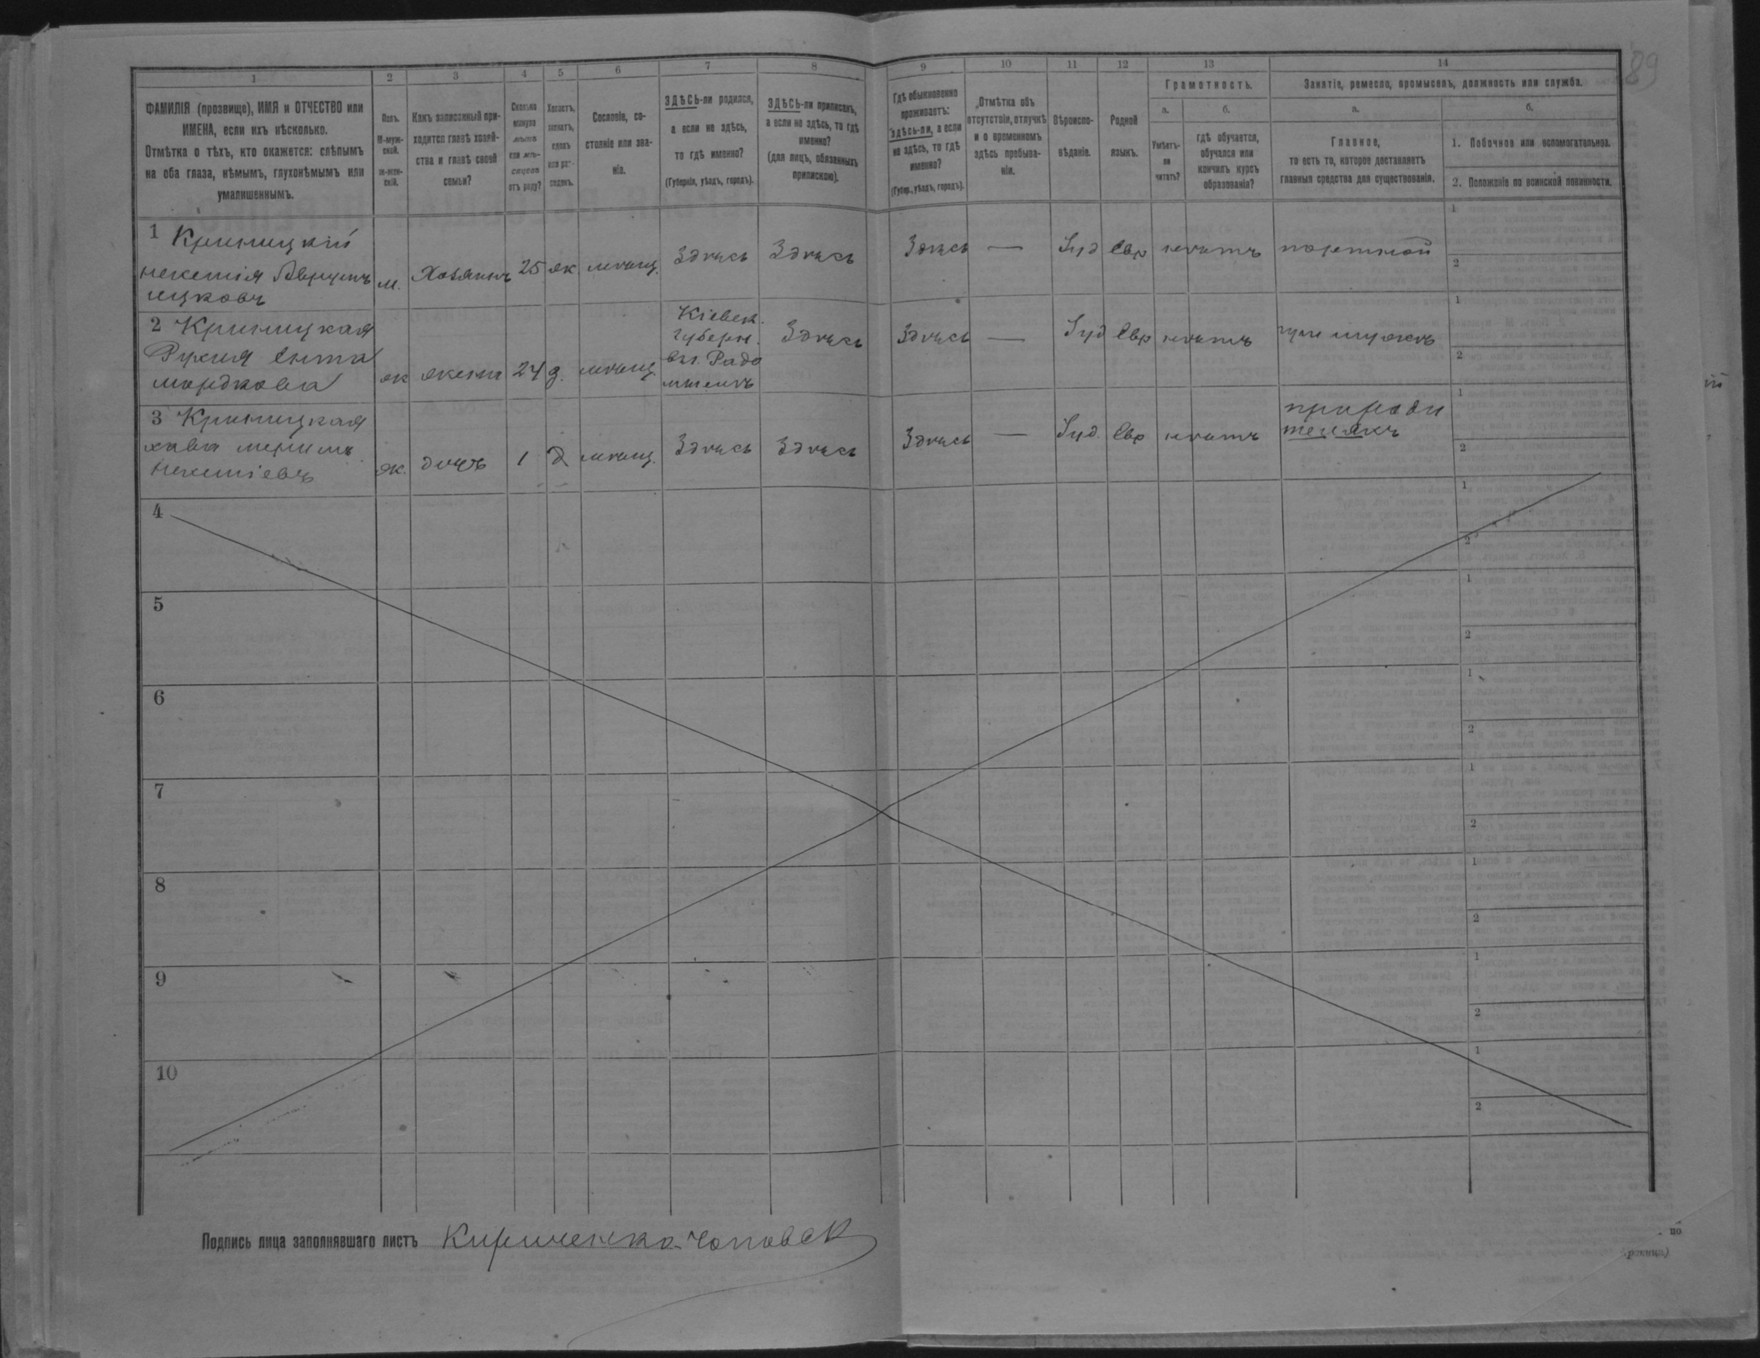 89
1 2 3 4 5 6 7 8 9 10 11 12 13 14
ФАМИЛІЯ (прозвище), ИМЯ и ОТЧЕСТВО или
ИМЕНА, если ихъ нѣсколько.
Отмѣтка о тѣхъ, кто окажется: слѣпымъ
на оба глаза, нѣмымъ, глухонѣмымъ или
умалишеннымъ.
Полъ.
М-муж-
ской.
Ж-жен-
скій.
Какъ записанный при-
ходится главѣ хозяй-
ства и главѣ своей
семьи?
Сколько
минуло
лѣтъ
или мѣ-
сяцевъ
отъ роду?
Холостъ,
женатъ,
вдовъ
или раз-
веденъ.
Сословіе, со-
стояніе или зва-
ніе.
ЗДѢСЬ-ли родился,
а если не здѣсь,
то гдѣ именно?
(Губернія, уѣздъ, городъ).
ЗДѢСЬ-ли приписанъ,
а если не здѣсь, то гдѣ
именно?
(для лицъ, обязанныхъ
припискою).
Гдѣ обыкновенно
проживаетъ:
здѣсь-ли, а если
не здѣсь, то гдѣ
именно?
(Губер., уѣздъ, городъ).
Отмѣтка объ
отсутствіи, отлучкѣ
и о временномъ
здѣсь пребыва-
ніи.
Вѣроиспо-
вѣданіе.
Родной
языкъ.
Грамотность.
а.
Умѣетъ-
ли
читать?
б.
гдѣ обучается,
обучался или
кончилъ курсъ
образованія?
Занятіе, ремесло, промыселъ, должность или служба.
а.
Главное,
то есть то, которое доставляетъ
главныя средства для существованія.
б.
1. Побочное или вспомогательное.
2. Положеніе по воинской повинности.
1 Криницкій
Нехемія Аврумъ
Ицковъ
м. Хозяинъ 25 ж мѣщ. Здѣсь Здѣсь Здѣсь — Іуд Евр нѣтъ портной
1
2
2 Криницкая
Рухля Ента
Мордкова
ж жена 24 з. мѣщ.
Кіевск.
Губерн.
въ г. Радо
мыслѣ
Здѣсь Здѣсь — Іуд Евр нѣтъ при мужѣ
1
2
3 Криницкая
Хава
Нехеміевъ
ж. дочь 1 д мѣщ. Здѣсь Здѣсь Здѣсь — Іуд. Евр нѣтъ
при роди
теляхъ
1
2
4
1
2
5
1
2
6
1
2
7
1
2
8
1
2
9
1
2
10
1
2
Подпись лица заполнявшаго листъ